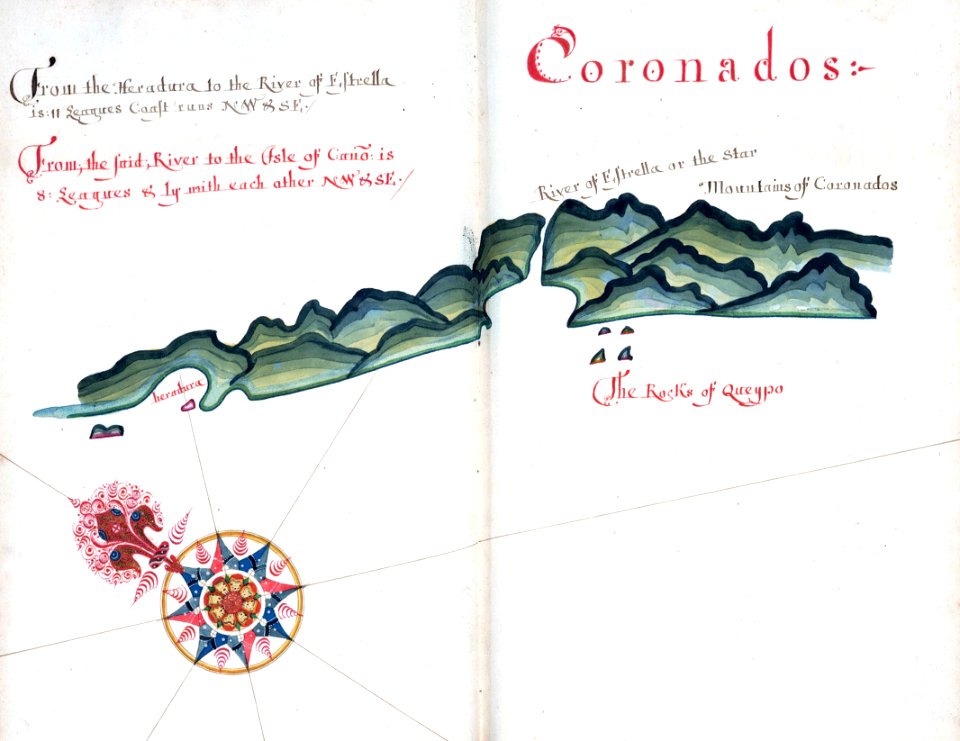 From the Heradura to the River of Estrella
is: 11 Leagues Coast runs NW & SE,/
From, the said, River to the Isle of Cano: is
8: Leagues & ly with each other NW & SE,/
Coronados:~
River of Estrella or the Star
Mountains of Coronados
heradura
The Rocks of Queypo